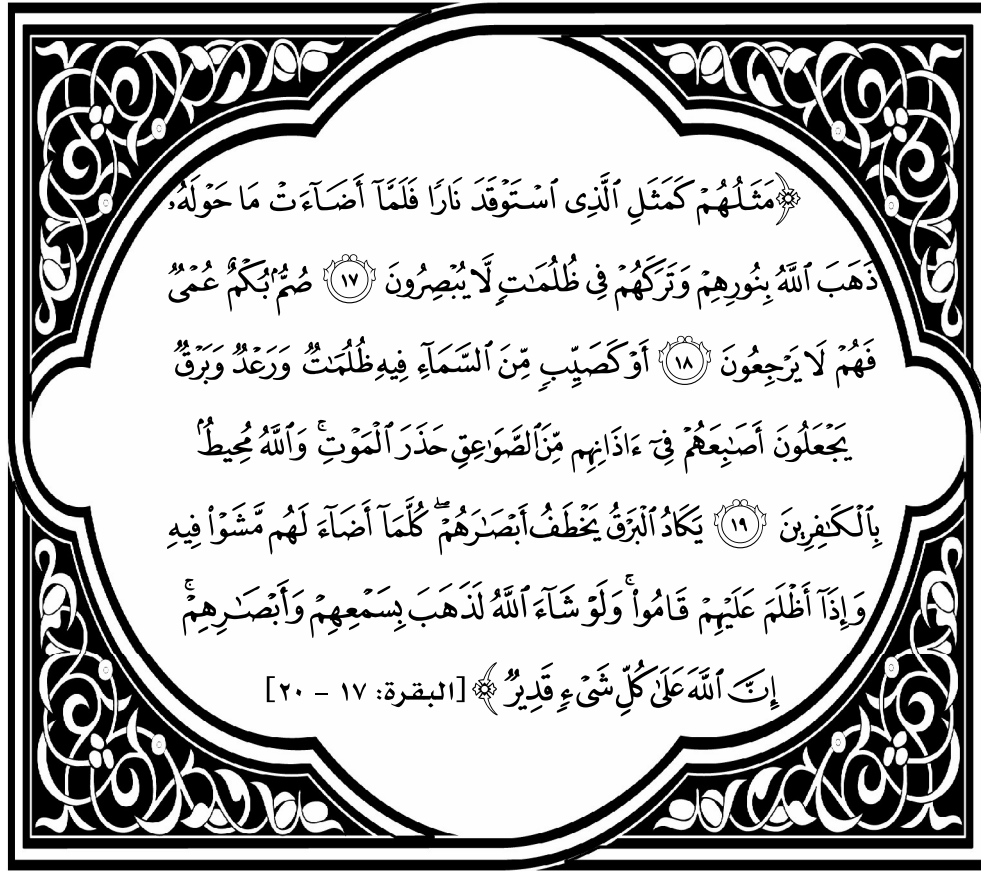 ﴿مَثَلُهُمْ كَمَثَلِ ٱلَّذِى ٱسْتَوْقَدَ نَارًا فَلَمَّآ أَضَآءَتْ مَا حَوْلَهُۥ
ذَهَبَ ٱللَّهُ بِنُورِهِمْ وَتَرَكَهُمْ فِى ظُلُمَـٰتٍۢ لَّا يُبْصِرُونَ ١٧ صُمٌّۢ بُكْمٌ عُمْىٌۭ
فَهُمْ لَا يَرْجِعُونَ ١٨ أَوْ كَصَيِّبٍۢ مِّنَ ٱلسَّمَآءِ فِيهِ ظُلُمَـٰتٌۭ وَرَعْدٌۭ وَبَرْقٌۭ
يَجْعَلُونَ أَصَـٰبِعَهُمْ فِىٓ ءَاذَانِهِم مِّنَ ٱلصَّوَٰعِقِ حَذَرَ ٱلْمَوْتِ ۚ وَٱللَّهُ مُحِيطٌۢ
بِٱلْكَـٰفِرِينَ ١٩ يَكَادُ ٱلْبَرْقُ يَخْطَفُ أَبْصَـٰرَهُمْ ۖ كُلَّمَآ أَضَآءَ لَهُم مَّشَوْا۟ فِيهِ
وَإِذَآ أَظْلَمَ عَلَيْهِمْ قَامُوا۟ ۚ وَلَوْ شَآءَ ٱللَّهُ لَذَهَبَ بِسَمْعِهِمْ وَأَبْصَـٰرِهِمْ ۚ
إِنَّ ٱللَّهَ عَلَىٰ كُلِّ شَىْءٍۢ قَدِيرٌۭ﴾ [البقرة: ١٧ - ٢٠]